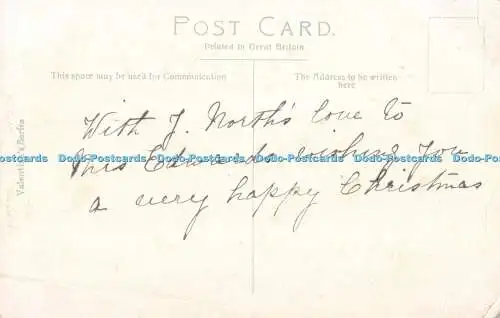 POST CARD.
Printed in Great Britain
This space may be used for Communication
The Address to be written
here
Valentine's Series
With J. North's love to
Mrs Edwards wishing you
a very happy Christmas
Dodo-Postcards Dodo-Postcards Dodo-Postcards Dodo-Postcards Dodo-Postcards Dodo-Postcards